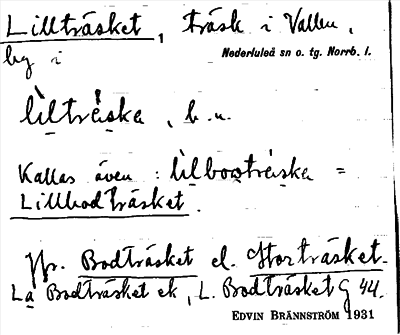 Lillträsket, träsk i Vallen,
by i Nederluleå sn o. tg. Norrb. l.
lìltrèska, b. u.
Kallas även: lìlbootrèska =
Lillbodträsket.
Jfr. Bodträsket el. Storträsket.
La Bodträsket ek, L. Bodträsket G 44.
EDVIN BRÄNNSTRÖM 1931